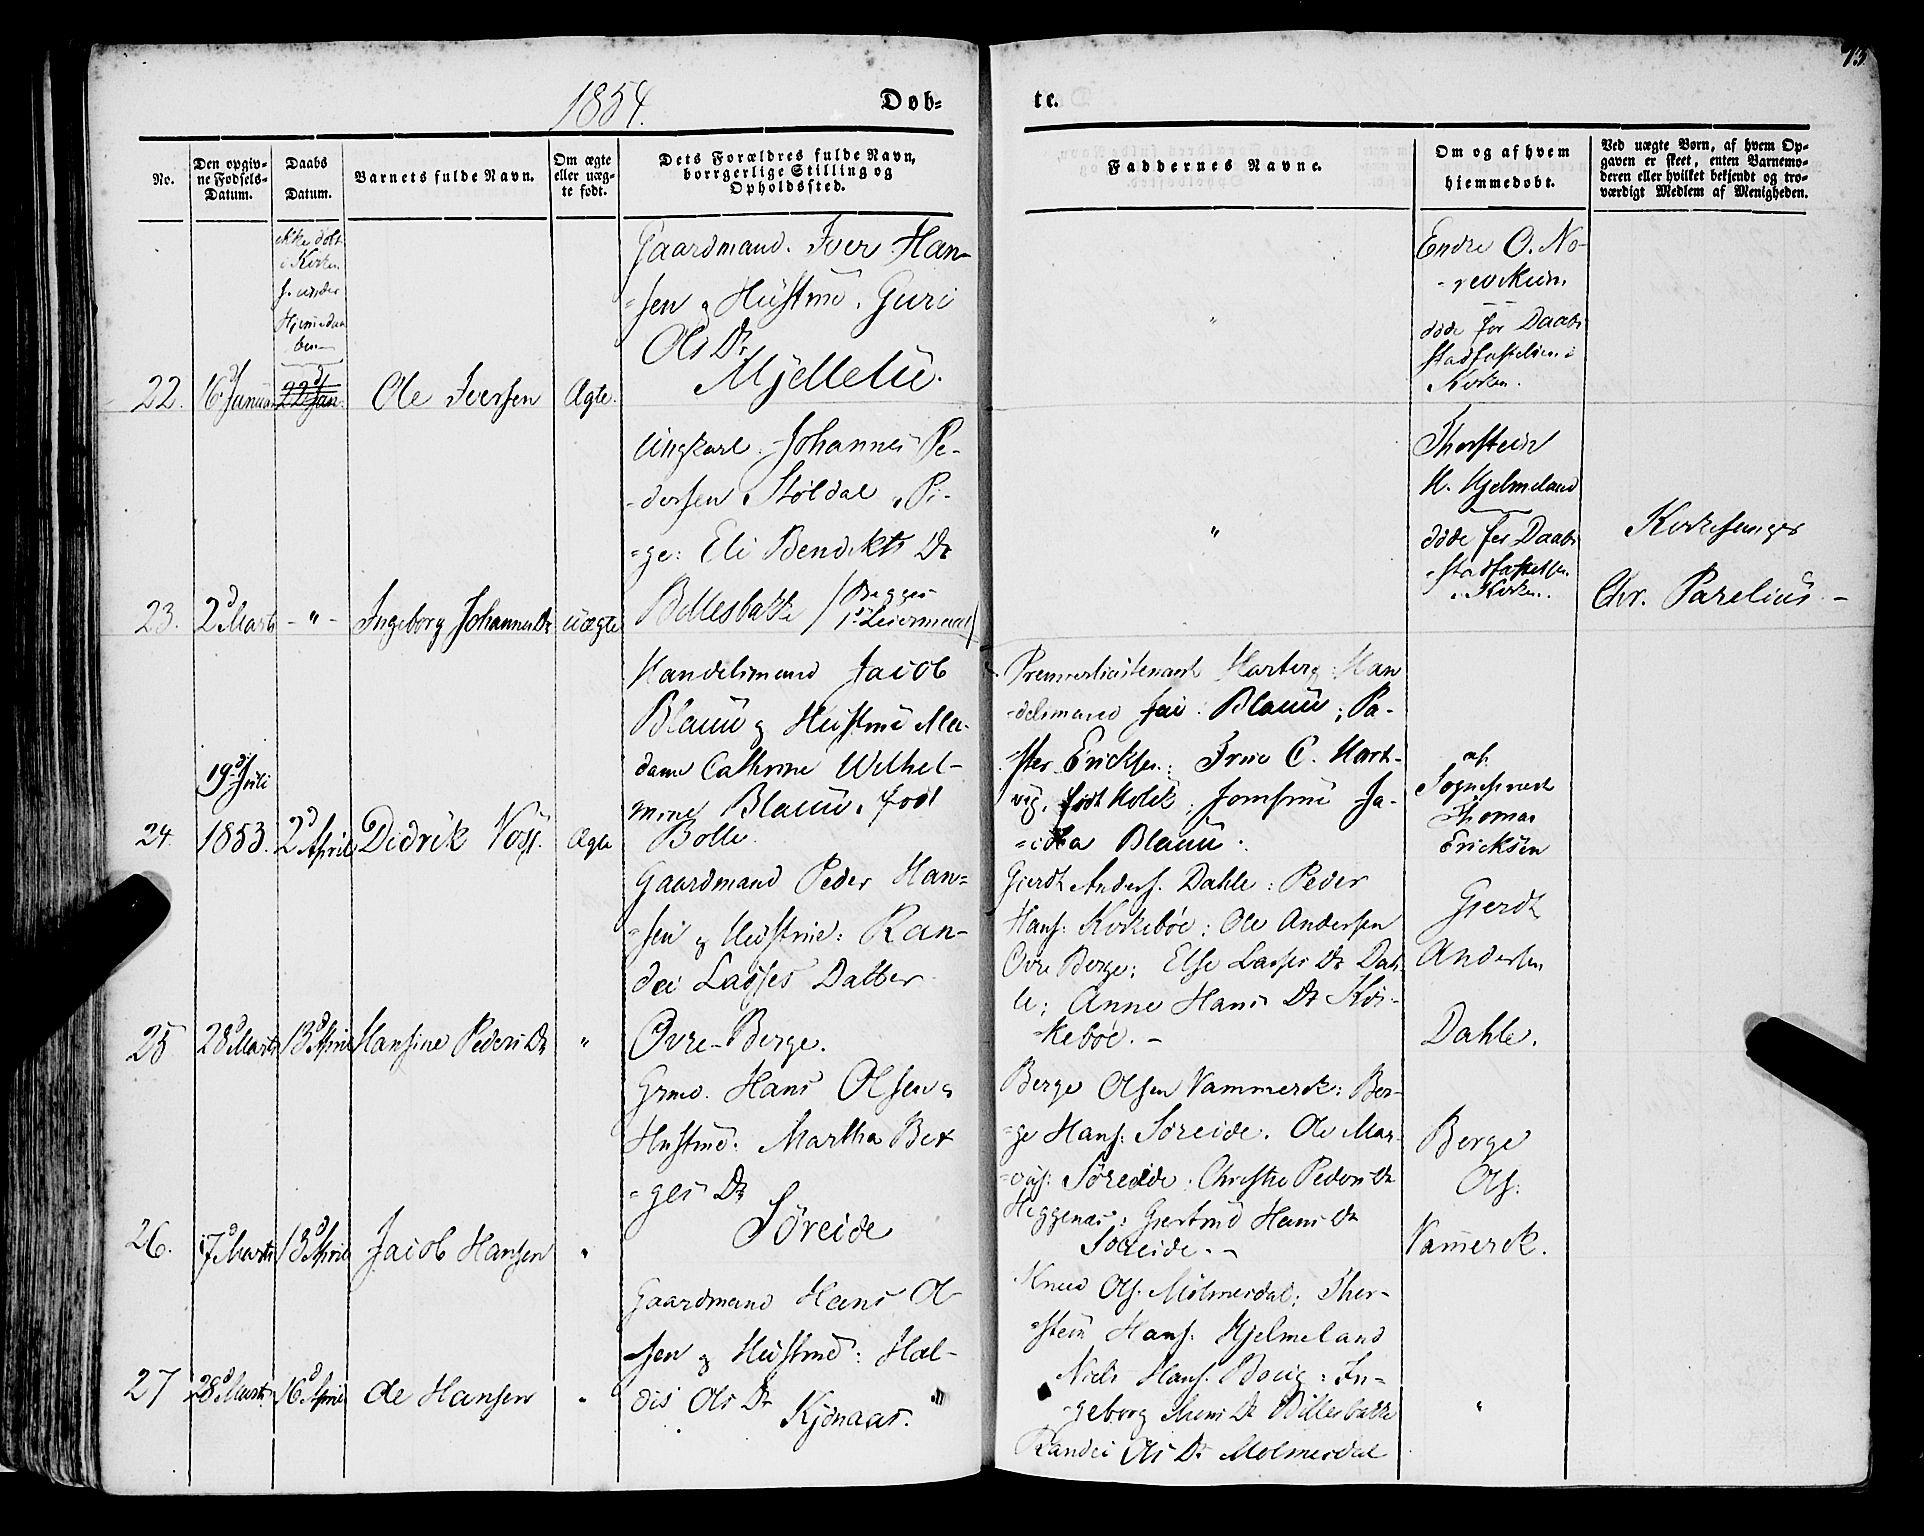 1854.
Døb-
te.
73
No.
Den opgiv-
ne Fødsels-
Datum.
Daabs
Datum.
Barnets fulde Navn.
Om ægte
eller uæg-
te født.
Dets Forældres fulde Navn,
borrgerlige Stilling og
Opholdssted.
Faddernes Navne.
Om og af hvem
hjemmedøbt.
Ved uægte Børn, af hvem Op-
gaven er skeet, enten Barnemo-
deren eller hvilket bekjendt og tro-
værdigt Medlem af Menigheden.
22.
16d Januar
ikke døbt
i Kirken
f. under
Hjemedaa
ben
22d Jan.
Ole Iversen
Ægte.
Gaardmand. Iver Han-
-sen & Hustrue. Guri
Ols Dr
Mjellelie.
"
Endre O. No-
-revikeim.
døde for Daabs
stadfæstelsen i
Kirken.
23.
2d Marts
- " -
Ingeborg Johannes Dr
uægte
Ungkarl. Johannes Pe-
-dersen Støldal & Pi-
-ge: Eli Bendikts Dr
Billesbakke / Begges
1ste Leiermaal /
"
Thorstein
H. Hjelmeland
døde før Daabs
-stadfæstelsen
i Kirken.
Kirkesanger
Chr. Parelius. -
24.
19d Juli
1853.
2d April
Didrik Voss.
Ægte
Handelsmand Jacob
Blauu & Hustrue Ma-
dame Cathrine Wilhel-
mine Blauu, født
Bolle.
Premierlieutenant Hartvig: Han
-delsmand Jac: Blauu; Pa-
stor Ericksen: Frue C. Hart-
vig, født Holck; Jomfrue Ja-
-coba Blauu.
af.
Sognepræst
Thomas
Ericksen
25
28d Marts
13d April
Hansine Peders Dr
"
Gaardmand Peder Han-
-sen & Hustrue: Ran-
dei Lasses Datter
Øvre-Berge.
Gierdt Anders. Dahle: Peder
Hans: Kirkebøe; Ole Andersen
Øvre Berge; Else Lasses Dr Dah-
le; Anne Hans Dr Kir-
-kebøe. -
Gierdt
Andersen
Dahle.
26.
17d Marts
13d April
Jacob Hansen
"
Grmd. Hans Olsen &
Hustrue. Martha Ber
-ges Dr
Søreide
Berge Olsen Vammerck: Ber-
-ge Hans: Søreide. Ole Mar-
Søreide. Christie Peders Dr
Heggenæs; Giertrud Hans Dr
Søreide. -
Berge
Ols.
Vamerck.
27
28d Marts
16d April
Ole Hansen
"
Gaardmand Hans Ol-
-sen & Hustrue: Hal-
dis Ols Dr Kjønaas.
Knud Ols. Mølmesdal; Thor-
-stein Hans. Hjelmeland
Niels Hans. Bouig: In-
-geborg Dr Billesbakke
Randei Ols Dr Mølmesdal
"